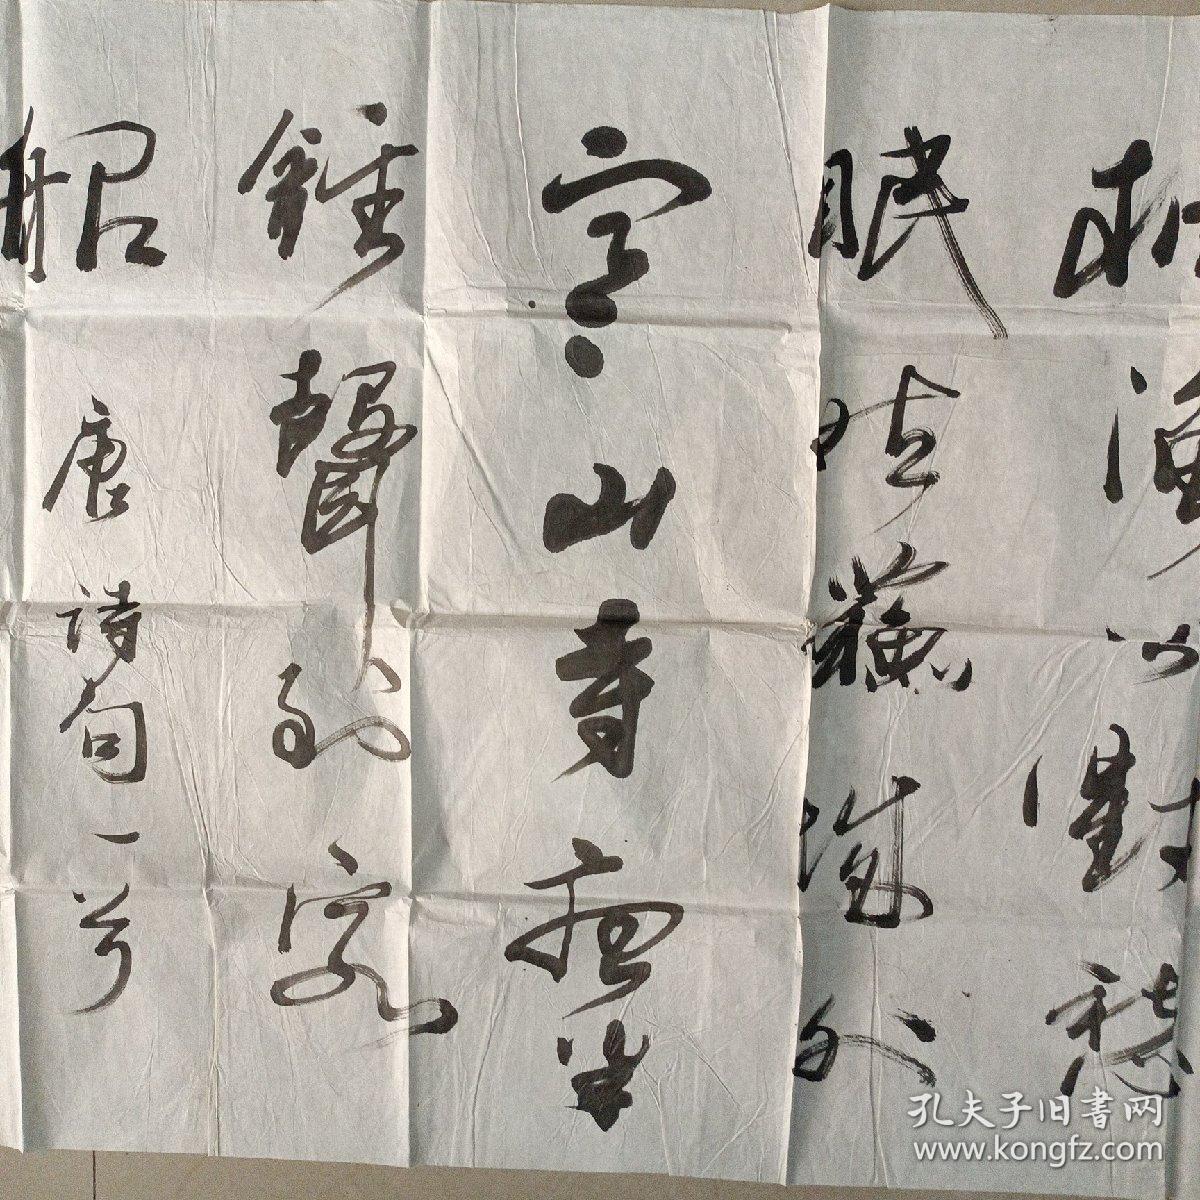 漁火對愁
眠姑蘇城外
寒山寺夜半
鍾聲到客
船
唐詩句一首
孔夫子旧書网
www.kongfz.com